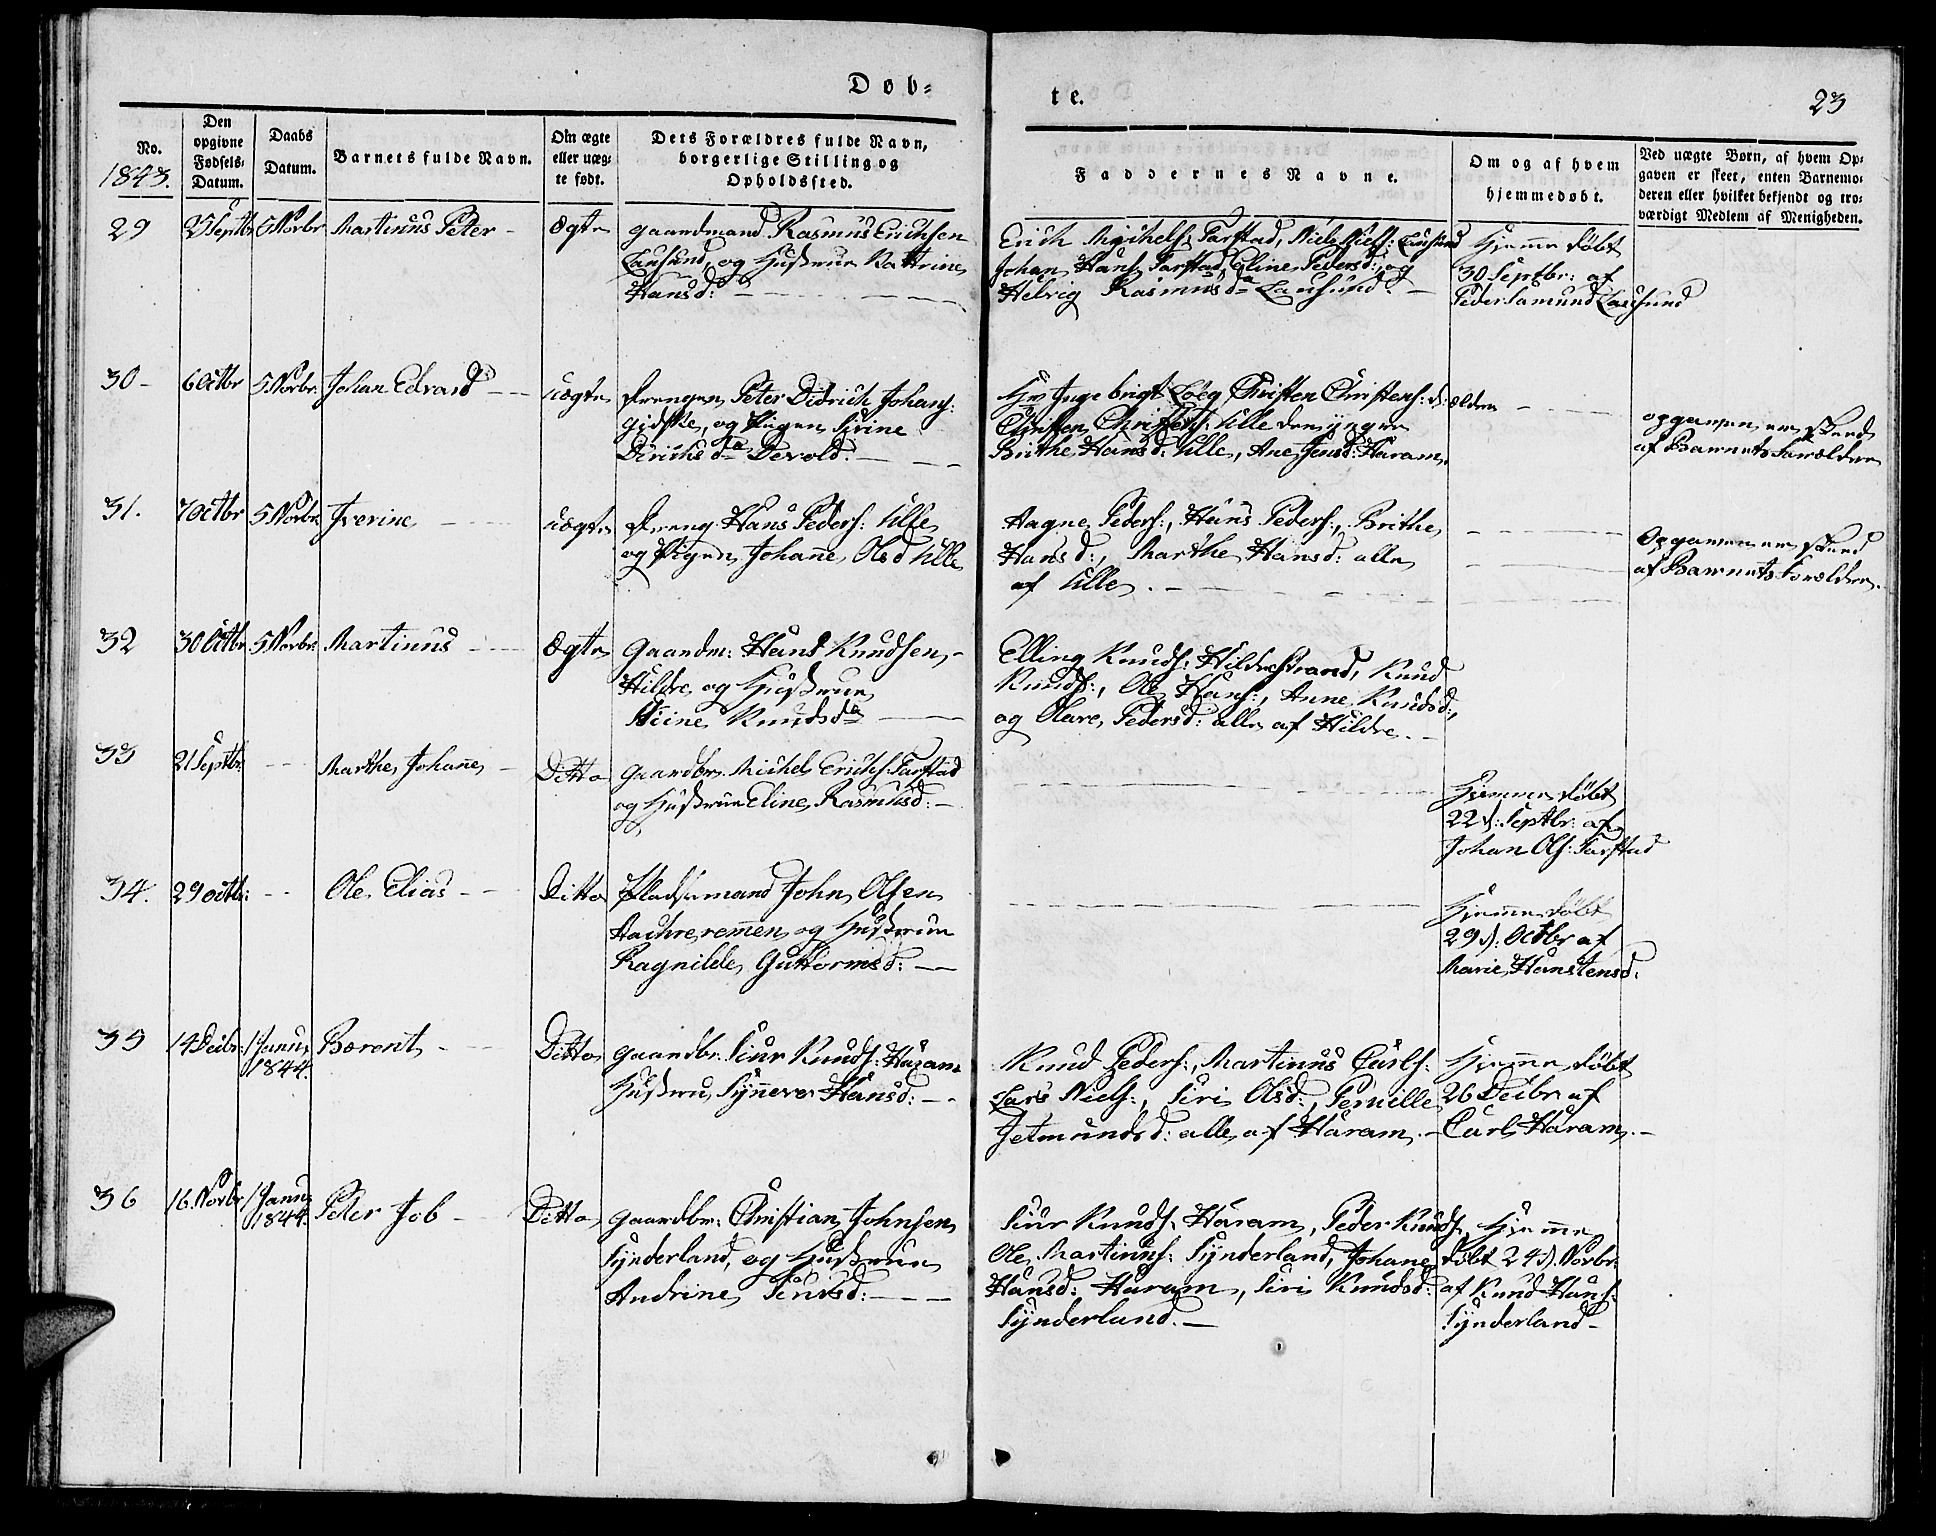 Døb=
te.
23
No.
1843.
Den
opgivne
Fødsels-
Datum.
Daabs
Datum.
Barnets fulde Navn.
Om ægte
eller uæg-
te født.
Dets Forældres fulde Navn,
borgerlige Stilling og
Opholdssted.
Faddernes Navne.
Om og af hvem
hjemmedøbt.
Ved uægte Børn, af hvem Op-
gaven er skeet, enten Barnemo-
deren eller hvilket bekjendt og tro-
værdigt Medlem af Menigheden.
29
25 Septbr
5 Novbr
Martinus Peter -
Ægte
Gaardmand Rasmus Erichsen
Lausund, og Hustrue Kattrine
Hansd: -
Erich Michels: Farstad, Niels Niels: Lausund
Johan Hans: Farstad, Eline Pedersd:, og
Helvig Rasmusda Lausund. -
Hjemme døbt
30 Septbr: af
Peder Samund Lausund
30 -
6 Octbr
5 Novbr.
Johan Edvard - -
uægte
Drengen Peter Didrich Johans:
Gidske, og Pigen Sirine
Dirichsda Devold. -
Hr Ingebrigt Løeg Christen Christens: d: ældre
Christen Christens: Ulle den yngre
Brithe Hansd: Ulle, Ane Jensd: Haram.
Opgaven er skeed
af Barnets Forældre
31.
7 Octbr
5 Novbr.
Iverine
uægte
Dreng Hans Peders: Ulle
og Pigen Johane Olsd Ulle
Aagne Peders:, Hans Peders:, Brithe
Hansd:, Marthe Hansd: alle
af Ulle. -
Opgaven er skeed
af Barnets Forældre.
32
30 Octbr.
5 Novbr.
Martinus - -
Ægte
Gaardm: Hans Knudsen, -
Hildre og Hustrue
Knudsda -
Elling Knuds: Hildrestrand, Knud
Knuds:, Ole Hans:, Anne Knudsd:,
og Olave Pedersd: alle af Hildre. -
33
21 Septbr:
- -
Marthe Johane -
Ditto
Gaardbr. Michel Erichs: Farstad
og Hustrue Eline Rasmusd: -
Hjemme døbt
22d: Septbr: af
Johan Ols: Farstad
34.
29 Octbr:
- -
Ole Elias - -
Ditto
Pladsemand John Olsen
og Hustrue
Ragnilde Guttormsd: -
Hjemme døbt
29d. Octbr af
Marie Hanstensd:
35
14 Decbr:
1 Janu,
1844.
Berent - -
Ditto
Gaardbr: Siur Knuds: Haram
Hustru, Synneve Hansd: - -
Knud Peders:, Martinus Carls:
Lars Niels:, Siri Olsd:, Pernille
Jetmundsd: alle af Haram. -
Hjemme døbt
26 Decbr af
Carl Haram. -
36
16. Novbr
1 Janu,
1844.
Peter Job -
Ditto
Gaardbr: Christian Johnsen
Synderland, og Hustrue
Andrine Siursd: - - -
Siur Knuds: Haram, Peder Knuds:
Ole Martinus: Synderland, Johane
Hansd: Haram, Siri Knudsd:
Synderland. -
Hjemme
døbt 24d. Novbr.
af Knud Hans:
Synderland -